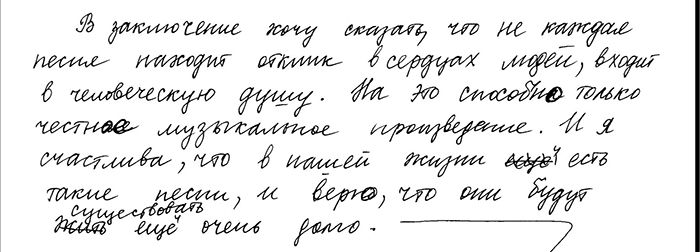 В заключение хочу сказать, что не каждая
песня находит отклик в сердцах людей, входит
в человеческую душу. На это способно только
честное музыкальное произведение. И я
счастлива, что в нашей жизни ещё есть
такие песни, и верю, что они будут
существовать
жить ещё очень долго.